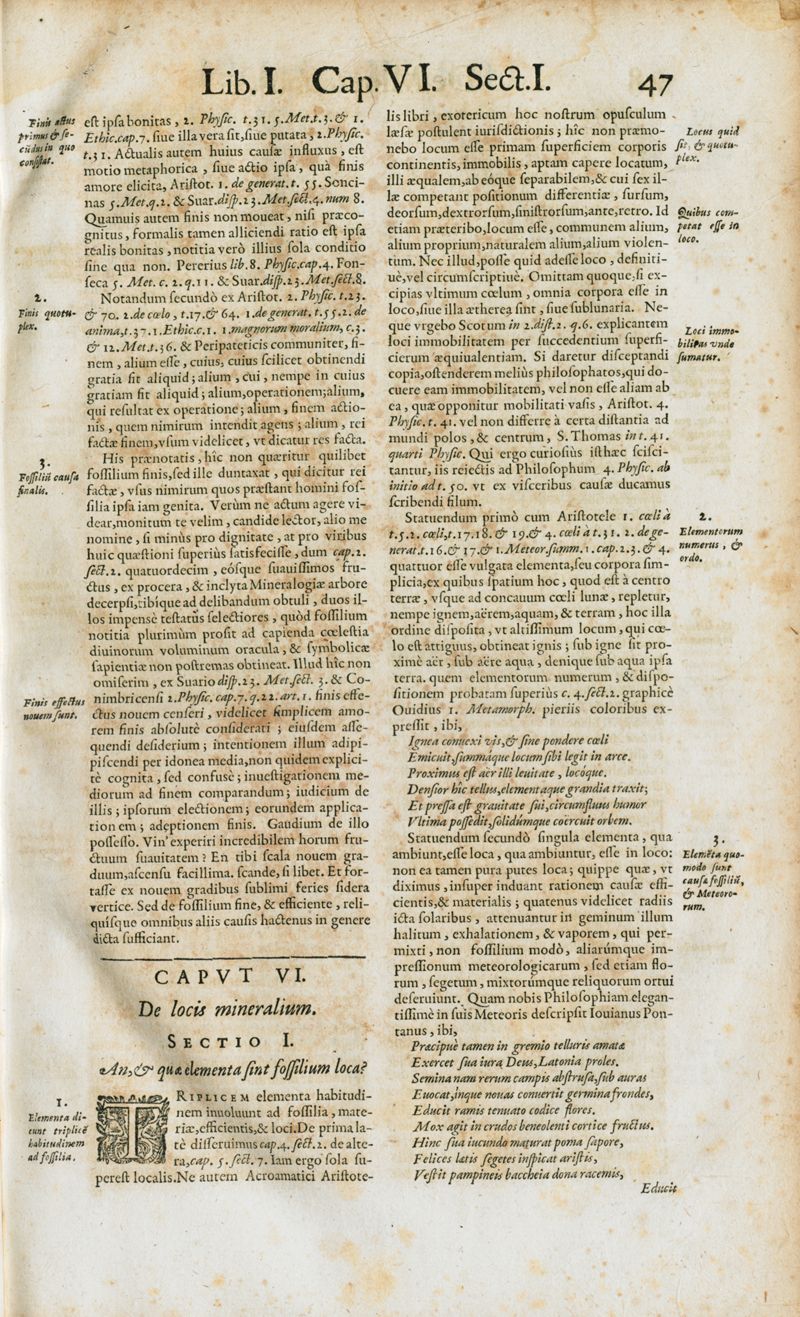 Lib. I. Cap. VI. Sect. I. 47
Finis actus
primus & se-
cūdus in quo
consistat.
est ipsa bonitas, 2. Physic. t.31. 5. Met. t.3. & 1.
Ethic. cap. 7. siue illa vera sit, siue putata, 2. Physic.
t.31. Actualis autem huius causæ influxus, est
motio metaphorica, siue actio ipsa, quà finis
amore elicita, Aristot. 1. de generat. t. 55. Sonci-
nas 5. Met. q. 2. & Suar. disp. 23. Met. sect. 4. num 8.
Quamuis autem finis non moueat, nisi præco-
gnitus, formalis tamen alliciendi ratio est ipsa
realis bonitas, notitia verò illius sola conditio
sine qua non. Pererius lib. 8. Physic. cap. 4. Fon-
seca 5. Met. c. 2. q. 11. & Suar. disp. 23. Met. sect. 8.
2.
Finis quotu-
plex.
Notandum secundò ex Aristot. 2. Physic. t.23.
& 70. 2. de cœlo, t.17. & 64. 1. de generat. t.55. 2. de
anima, t.37. 1. Ethic. c. 1. 1. magnorum moralium, c. 3.
& 12. Met. t. 36. & Peripateticis communiter, fi-
nem, alium esse, cuius, cuius scilicet obtinendi
gratia fit aliquid; alium, cui, nempe in cuius
gratiam fit aliquid; alium, operationem; alium,
qui resultat ex operatione; alium, finem actio-
nis, quem nimirum intendit agens; alium, rei
factæ finem, vsum videlicet, vt dicatur res facta.
3.
Fossiliū causa
finalis.
His prænotatis, hîc non quæritur quilibet
fossilium finis, sed ille duntaxat, qui dicitur rei
factæ, vsus nimirum quos præstant homini fos-
silia ipsa iam genita. Verùm ne actum agere vi-
dear, monitum te velim, candide lector, alio me
nomine, si minùs pro dignitate, at pro viribus
huic quæstioni superiùs satisfecisse, dum cap. 2.
sect. 2. quatuordecim, eósque suauissimos fru-
ctus, ex procera, & inclyta Mineralogiæ arbore
decerpsi, tibique ad delibandum obtuli, duos il-
los impensè testatus selectiores, quòd fossilium
notitia plurimùm prosit ad capienda cœlestia
diuinorum voluminum oracula, & symbolicæ
sapientiæ non postremas obtineat. Illud hîc non
omiserim, ex Suario disp. 23. Met. sect. 3. & Co-
Finis effectus
nouem sunt.
nimbricensi 2. Physic. cap. 7. q. 22. art. 1. finis effe-
ctus nouem censeri, videlicet simplicem amo-
rem finis absolutè considerati; eiusdem asse-
quendi desiderium; intentionem illum adipi-
piscendi per idonea media, non quidem explici-
tè cognita, sed confusè; inuestigationem me-
diorum ad finem comparandum; iudicium de
illis; ipsorum electionem; eorundem applica-
tionem; adeptionem finis. Gaudium de illo
possesso. Vin' experiri incredibilem horum fru-
ctuum suauitatem? En tibi scala nouem gra-
duum, ascensu facillima. scande, si libet. Et for-
tasse ex nouem gradibus sublimi feries sidera
vertice. Sed de fossilium fine, & efficiente, reli-
quisque omnibus aliis causis hactenus in genere
dicta sufficiant.
CAPVT VI.
De locis mineralium.
SECTIO I.
An, & quæ elementa sint fossilium loca?
1.
Elementa di-
cunt triplicē
habitudinem
ad fossilia.
TRIPLICEM elementa habitudi-
nem inuoluunt ad fossilia, mate-
riæ, efficientis, & loci. De prima la-
tè disseruimus cap. 4. sect. 2. de alte-
ra, cap. 5. sect. 7. Iam ergo sola su-
perest localis. Ne autem Acroamatici Aristote-
lis libri, exotericum hoc nostrum opusculum
læsæ postulent iurisdictionis; hîc non præmo-
Locus quid
sit, & quotu-
plex.
nebo locum esse primam superficiem corporis
continentis, immobilis, aptam capere locatum,
illi æqualem, ab eóque separabilem, & cui sex il-
læ competant positionum differentiæ, sursum,
deorsum, dextrorsum, sinistrorsum, ante, retro. Id
Quibus com-
petat esse in
loco.
etiam præteribo, locum esse, communem alium,
alium proprium, naturalem alium, alium violen-
tum. Nec illud, posse quid adesse loco, definiti-
uè, vel circumscriptiuè. Omittam quoque, si ex-
cipias vltimum cœlum, omnia corpora esse in
loco, siue illa ætherea sint, siue sublunaria. Ne-
que vrgebo Scotum in 2. dist. 2. q. 6. explicantem
Loci immo-
bilitas vnde
sumatur.
loci immobilitatem per succedentium superfi-
cierum æquiualentiam. Si daretur disceptandi
copia, ostenderem meliùs philosophatos, qui do-
cuere eam immobilitatem, vel non esse aliam ab
ea, quæ opponitur mobilitati vasis, Aristot. 4.
Physic. t. 41. vel non differre à certa distantia ad
mundi polos, & centrum, S. Thomas in t. 41.
quarti Physic. Qui ergo curiosiùs isthæc scisci-
tantur, iis reiectis ad Philosophum 4. Physic. ab
initio ad t. 50. vt ex visceribus causæ ducamus
scribendi filum.
2.
Elementorum
numerus, &
ordo.
Statuendum primò cum Aristotele 1. cœli à
t.5. 2. cœli, t.17. 18. & 19. & 4. cœli à t.31. 2. de ge-
nerat. t.16. & 17. & 1. Meteor. summ. 1. cap. 2. 3. & 4.
quattuor esse vulgata elementa, seu corpora sim-
plicia, ex quibus spatium hoc, quod est à centro
terræ, vsque ad concauum cœli lunæ, repletur,
nempe ignem, aërem, aquam, & terram, hoc illa
ordine disposita, vt altissimum locum, qui cœ-
lo est attiguus, obtineat ignis; sub igne sit pro-
ximè aër, sub aëre aqua, denique sub aqua ipsa
terra. quem elementorum numerum, & dispo-
sitionem probatam superiùs c. 4. sect. 2. graphicè
Ouidius 1. Metamorph. pieriis coloribus ex-
pressit, ibi,
Ignea conuexi vis, & sine pondere cœli
Emicuit, summáque locum sibi legit in arce.
Proximus est aër illi leuitate, locóque.
Densior hic tellus, elementaque grandia traxit;
Et pressa est grauitate sui, circumfluus humor
Vltima possedit, solidúmque coërcuit orbem.
3.
Elemēta quo-
modo sunt
causa fossiliū,
& Meteoro-
rum.
Statuendum secundò singula elementa, qua
ambiunt, esse loca, qua ambiuntur, esse in loco:
non ea tamen pura putes loca; quippe quæ, vt
diximus, insuper induant rationem causæ effi-
cientis, & materialis; quatenus videlicet radiis
icta solaribus, attenuantur in geminum illum
halitum, exhalationem, & vaporem, qui per-
mixti, non fossilium modò, aliarúmque im-
pressionum meteorologicarum, sed etiam flo-
rum, segetum, mixtorúmque reliquorum ortui
deseruiunt. Quam nobis Philosophiam elegan-
tissimè in suis Meteoris descripsit Iouianus Pon-
tanus, ibi,
Præcipuè tamen in gremio telluris amatæ
Exercet sua iura Deus, Latonia proles.
Semina nam rerum campis abstrusa, sub auras
Euocat, inque nouas conuertit germina frondes,
Educit ramis tenuato codice flores.
Mox agit in crudos beneolenti cortice fructus.
Hinc sua iucundo maturat poma sapore,
Felices latis segetes inspicat aristis,
Vestit pampineis baccheia dona racemis,
Educit